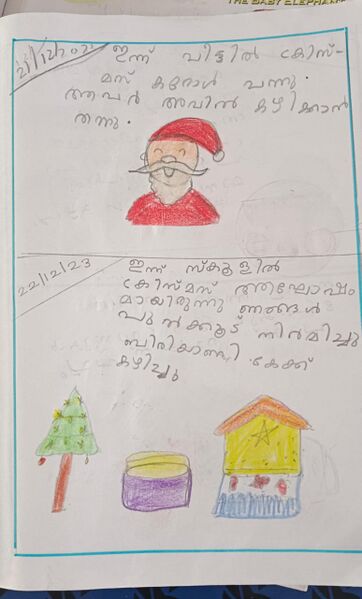 THE BABY ELEPHAN
21/12/2023
ഇന്ന് വീട്ടിൽ ക്രിസ്-
മസ് കരോൾ വന്നു.
അവർ അവിൽ കഴിക്കാൻ
തന്നു.
22/12/23
ഇന്ന് സ്കൂളിൽ
ക്രിസ്മസ് ആഘോഷം
മായിരുന്നു ഞങ്ങൾ
പുൽക്കൂട് നിർമിച്ചു
ബിരിയാണി കേക്ക്
കഴിച്ചു